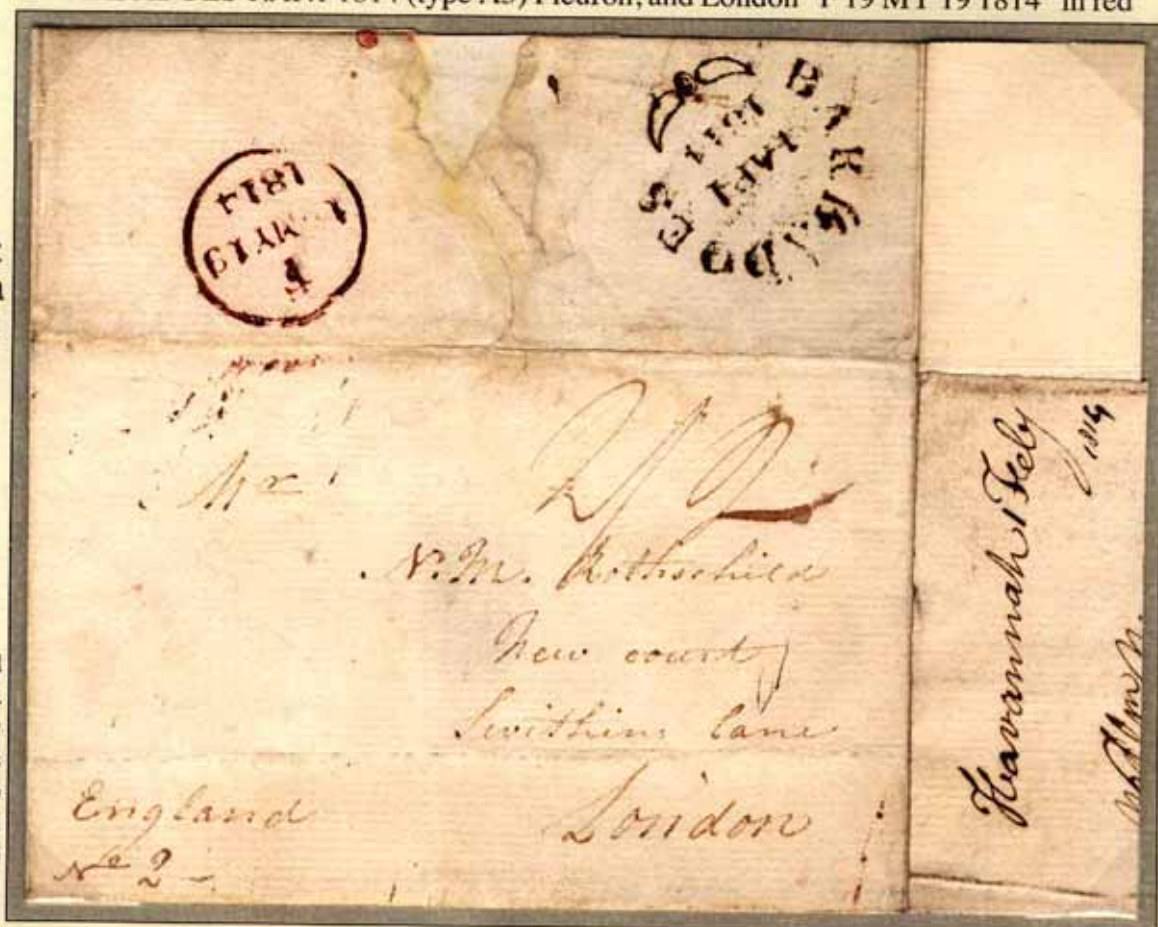 1814 (type A3) Fleuron, and London "F 19 MY 19 1814" in red
BARBADOES
1 AP 1
F
MY 19
1814
Mr
2/2
N. M. Rothschild
New court
Swithins lane
London
England
No 2
Havannah 1 Feby
1814